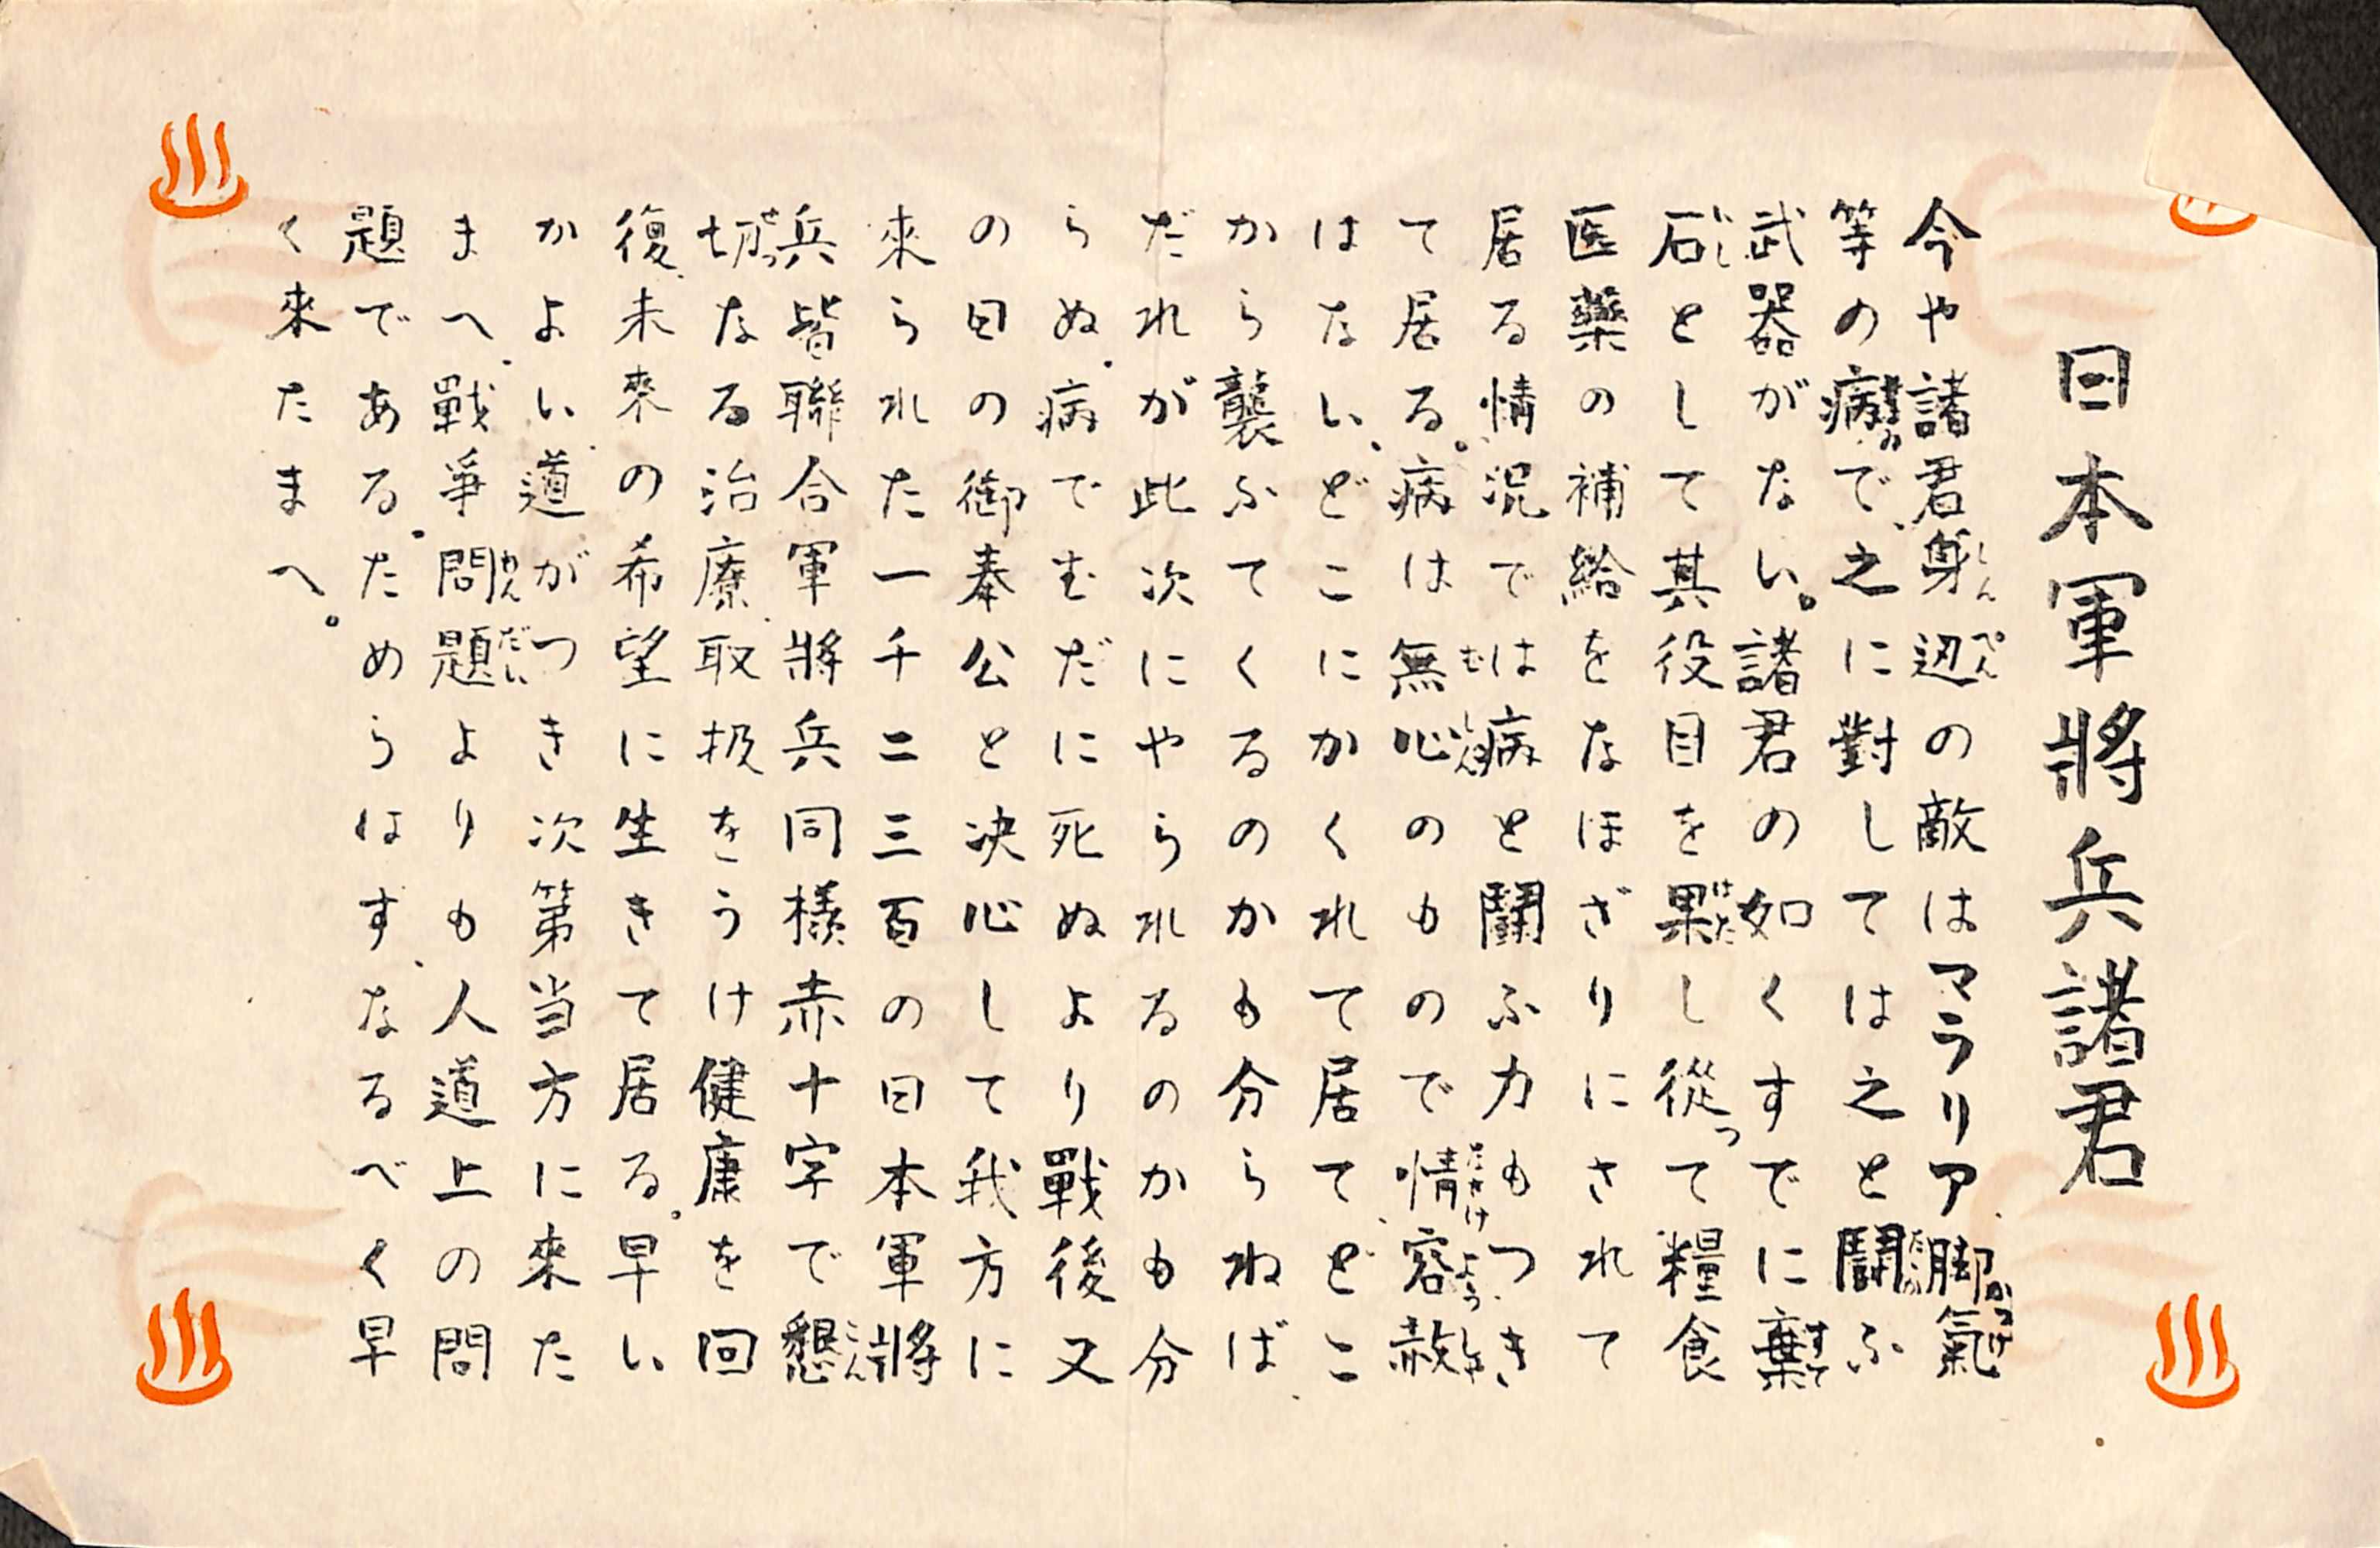 日本軍將兵諸君
今や諸君身辺の敵はマラリア、脚氣
等の病で、之に對しては之と闘ふ
武器がない。諸君の如くすでに棄
石として其役目を果し從って糧食
医藥の補給をなほざりにされて
居る情況では病と闘ふ力もつき
て居る。病は無心のもので情、容赦
はない、どこにかくれて居てどこ
から襲ふてくるのかも分らねば、
だれが此次にやられるのかも分
らぬ。病でむだに死ぬより戰後又
の日の御奉公と決心して我方に
來られた一千二三百の日本軍將
兵皆聯合軍將兵同樣赤十字で懇
切なる治療、取扱をうけ健康を回
復、未來の希望に生きて居る。早い
かよい、道がつき次第当方に來た
まへ、戰爭問題よりも人道上の問
題である。ためらはす、なるべく早
く來たまへ。